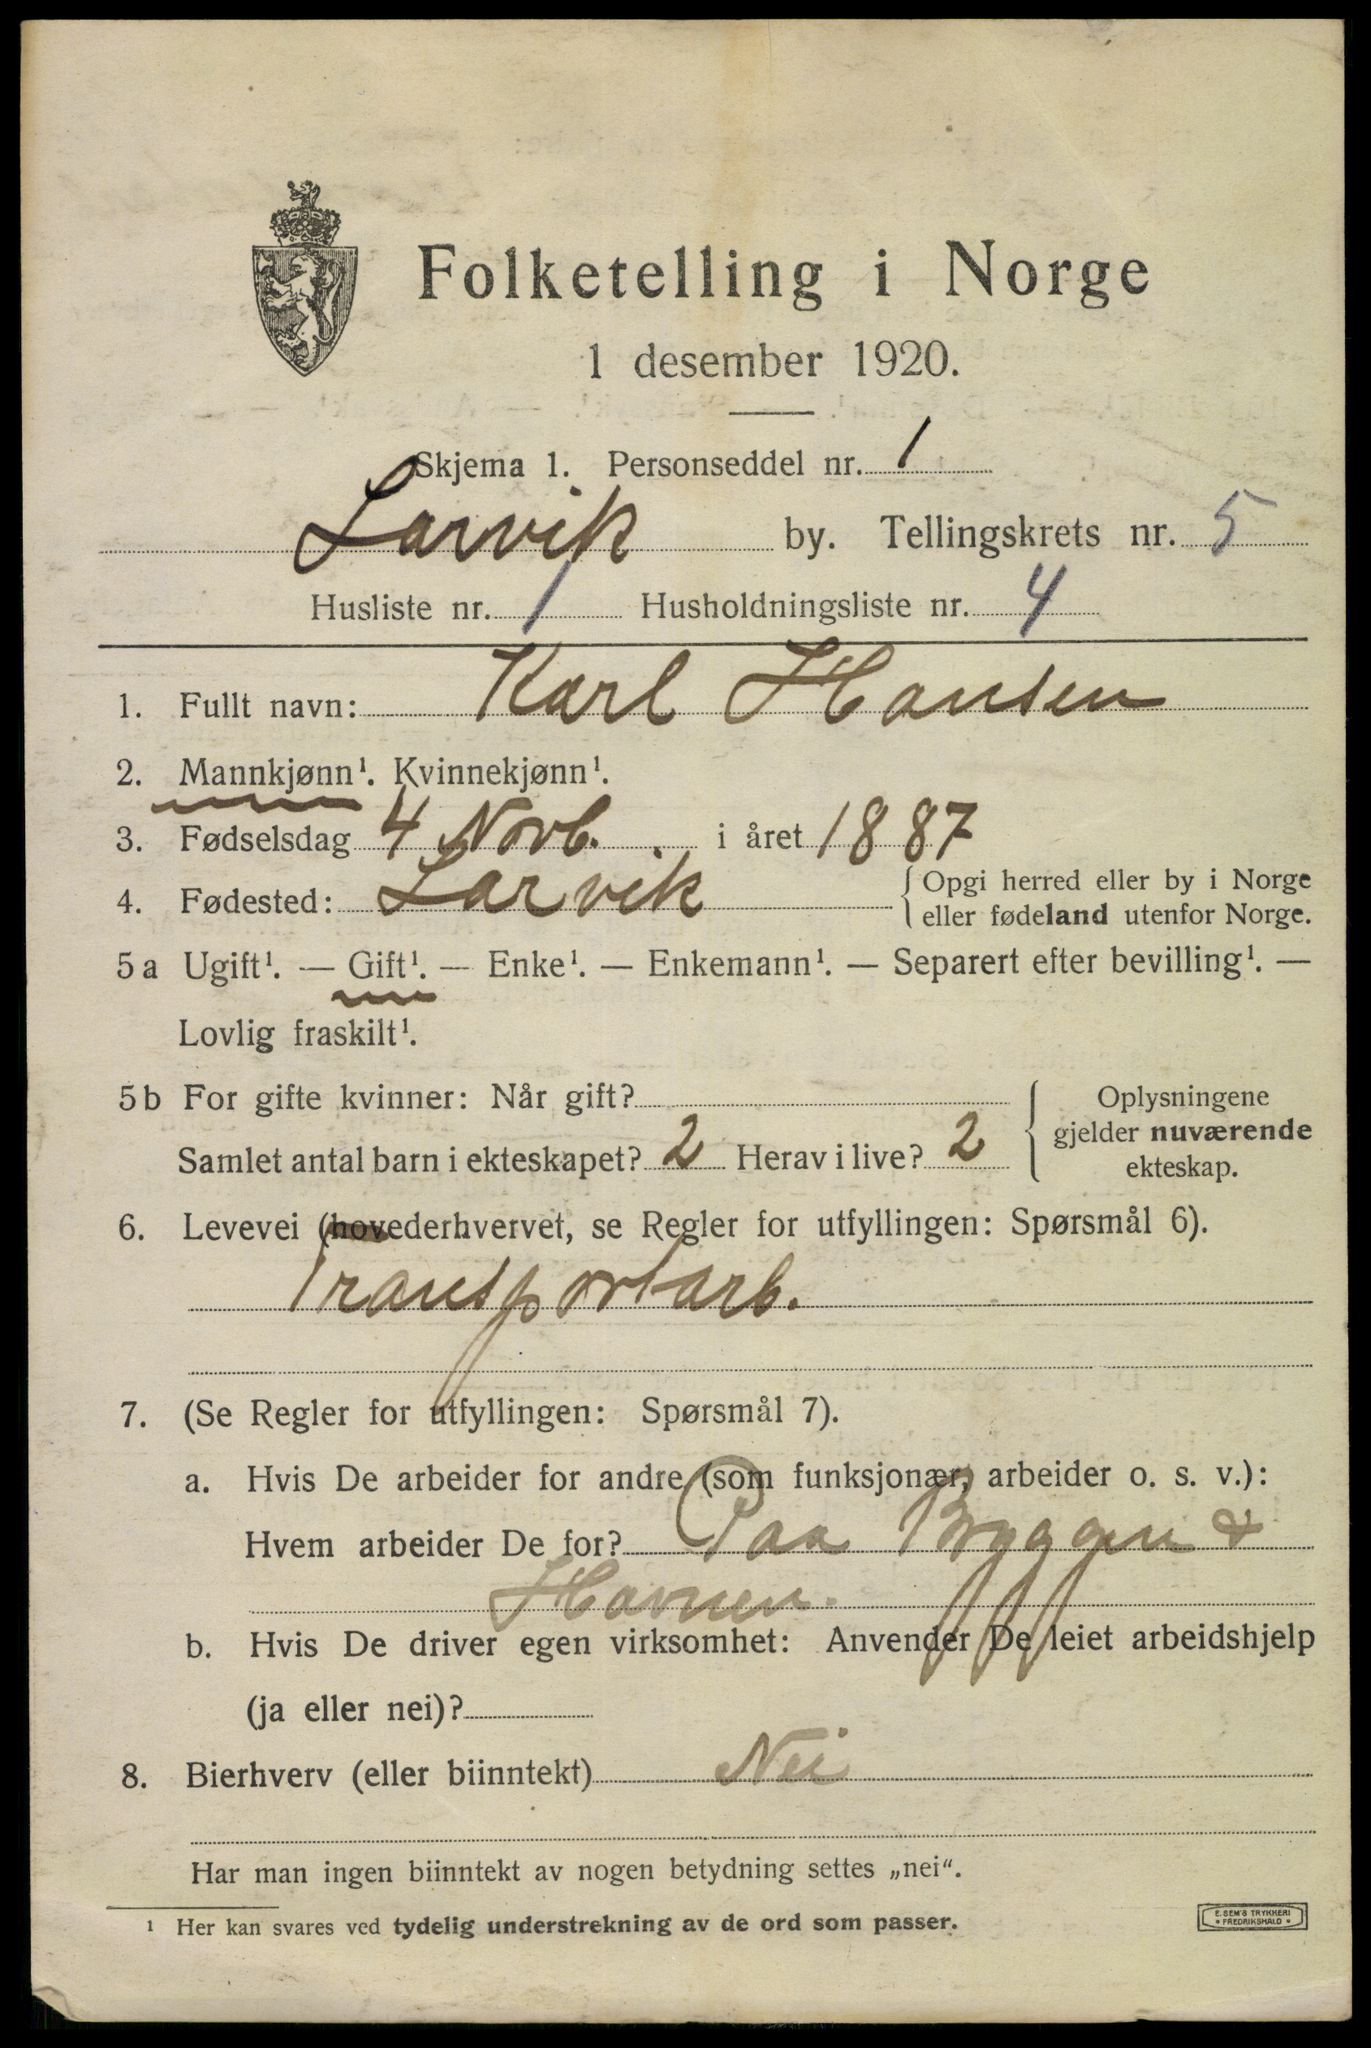 Folketelling i Norge
1 desember 1920.
Skjema 1. Personseddel nr. 1
Larvik by. Tellingskrets nr. 5
Husliste nr. 1 Husholdningsliste nr. 4
1. Fullt navn: Karl Hansen
2. Mannkjønn¹. Kvinnekjønn¹.
3. Fødselsdag 4 Novb. i året 1887
4. Fødested: Larvik { Opgi herred eller by i Norge
eller fødeland utenfor Norge.
5a Ugift¹. — Gift¹. — Enke¹. — Enkemann¹. — Separert efter bevilling¹. —
Lovlig fraskilt¹.
5b For gifte kvinner: Når gift?
Samlet antal barn i ekteskapet? 2 Herav i live? 2
{ Oplysningene
gjelder nuværende
ekteskap.
6. Levevei (hovederhvervet, se Regler for utfyllingen: Spørsmål 6).
Transportarb.
7. (Se Regler for utfyllingen: Spørsmål 7).
a. Hvis De arbeider for andre (som funksjonær, arbeider o. s. v.):
Hvem arbeider De for? Paa Bryggen &
Havnen.
b. Hvis De driver egen virksomhet: Anvender De leiet arbeidshjelp
(ja eller nei)?
8. Bierhverv (eller biinntekt) Nei
Har man ingen biinntekt av nogen betydning settes „nei“.
¹ Her kan svares ved tydelig understrekning av de ord som passer.
E. SEM'S TRYKKERI
• FREDRIKSHALD •